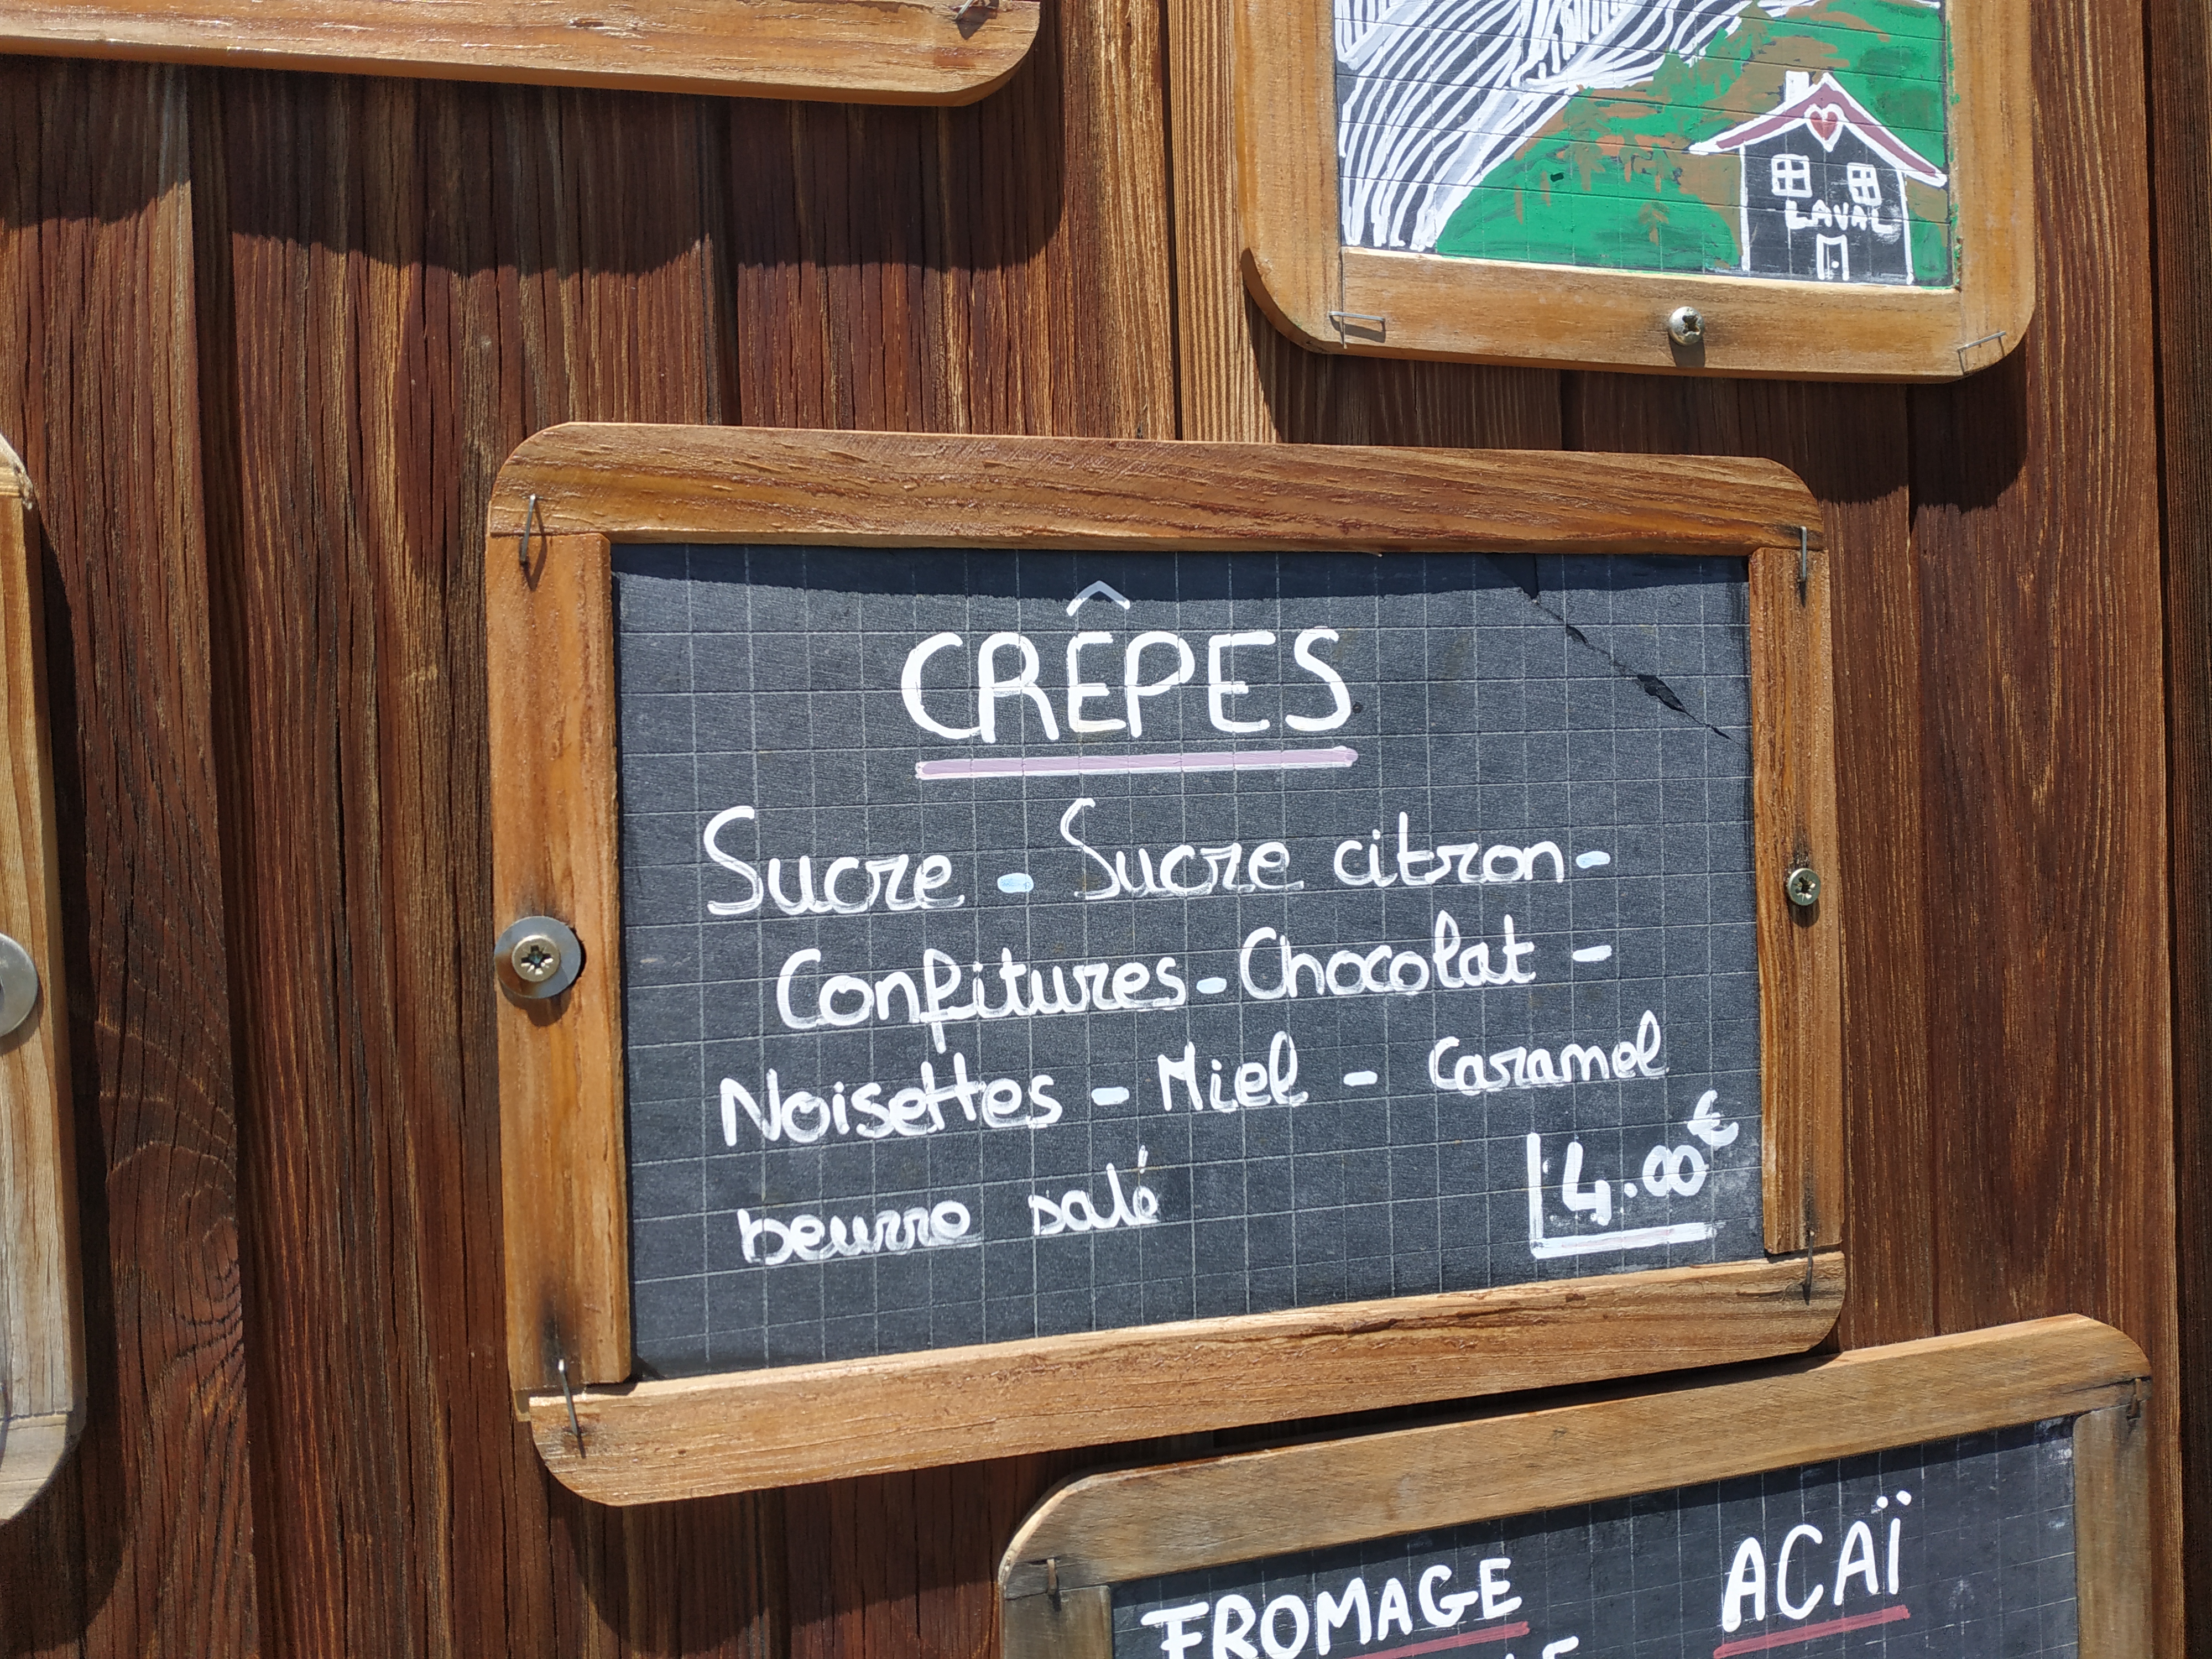 LAVAL
CRÊPES
Sucre - Sucre citron -
Confitures - Chocolat -
Noisettes - Miel - Caramel
beurre salé
4.00€
FROMAGE
ACAÏ